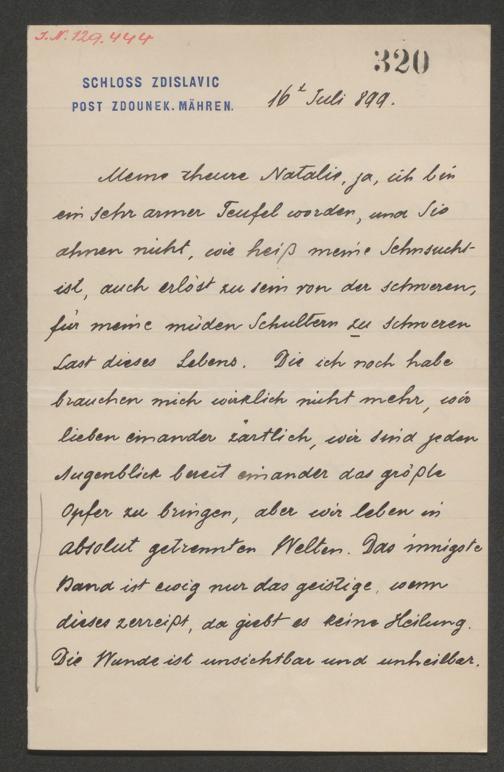 J.N. 129.444
320
SCHLOSS ZDISLAVIC
POST ZDOUNEK. MÄHREN.
16t Juli 899.
Meine theure Natalie, ja, ich bin
ein sehr armer Teufel worden, und Sie
ahnen nicht, wie heiß meine Sehnsucht
ist, auch erlöst zu sein von der schweren,
für meine müden Schultern zu schweren
Last dieses Lebens. Die ich noch habe
brauchen mich wirklich nicht mehr, wir
lieben einander zärtlich, wir sind jeden
Augenblick bereit einander das größte
Opfer zu bringen, aber wir leben in
absolut getrennten Welten. Das innigste
Band ist ewig nur das geistige, wenn
dieses zerreißt, da giebt es keine Heilung.
Die Wunde ist unsichtbar und unheilbar.